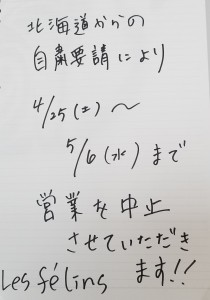 北海道からの
自粛要請により
4/25(土)〜
5/6(水)まで
営業を中止
させていただき
ます!!
Les félins